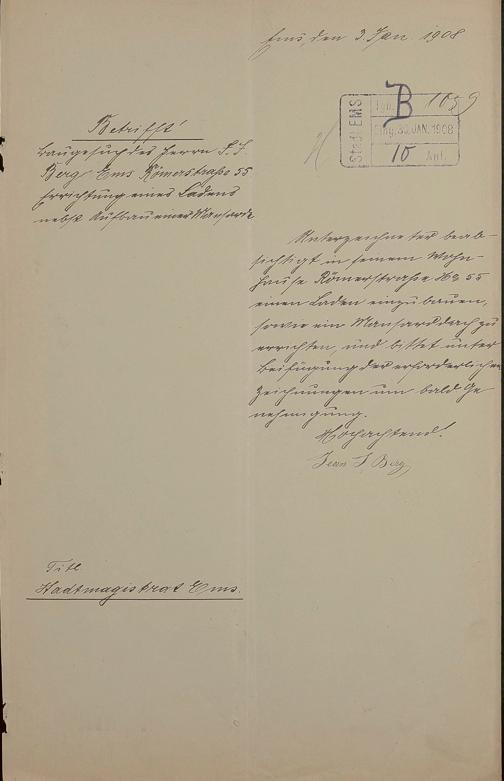 Ems, den 3. Jan. 1908
Stadt EMS
Tgb. B 1059
Eing. 30. JAN. 1908
10 Anl.
Betrifft
Baugesuch des Herrn J. J.
Berg Ems Römerstraße 55
Errichtung eines Ladens
nebst Aufbau einer Mansarde
Unterzeichneter beab-
sichtigt in seinem Wohn-
hause Römerstraße No 55
einen Laden einzubauen,
sowie ein Mansarddach zu
errichten, und bittet unter
Beifügung der erforderlichen
Zeichnungen um bald Ge
nehmigung.
Hochachtend!
Jean J. Berg
Titl
Stadtmagistrat Ems.